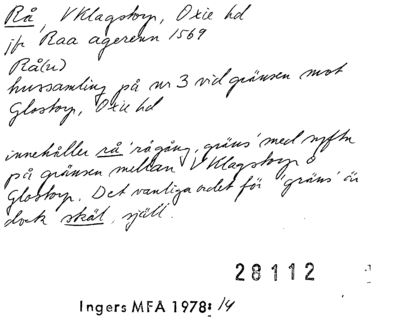 Rå, V Klagstorp, Oxie hd
jfr Raa agerenn 1569
Rå(u)
hussamling på nr 3 vid gränsen mot
Glostorp, Oxie hd
innehåller rå 'rågång, gräns' med syftn
på gränsen mellan V Klagstorp o
Glostorp. Det vanliga ordet för 'gräns' är
dock skäl, själl.
28112
Ingers MFA 1978: 14